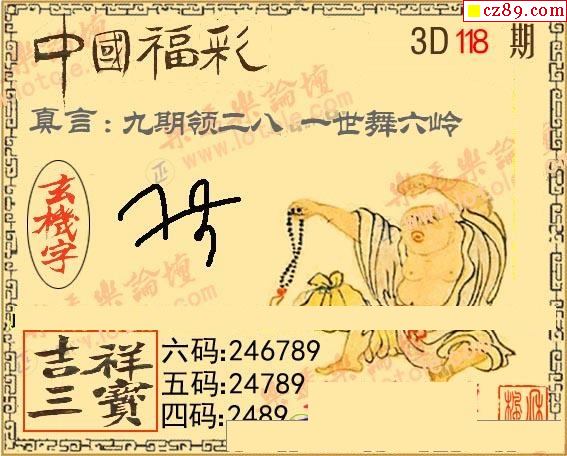 cz89.com
中國福彩
3D 118 期
真言：九期领二八 一世舞六岭
玄機字
吉祥三寶
六码:246789
五码:24789
四码:2489